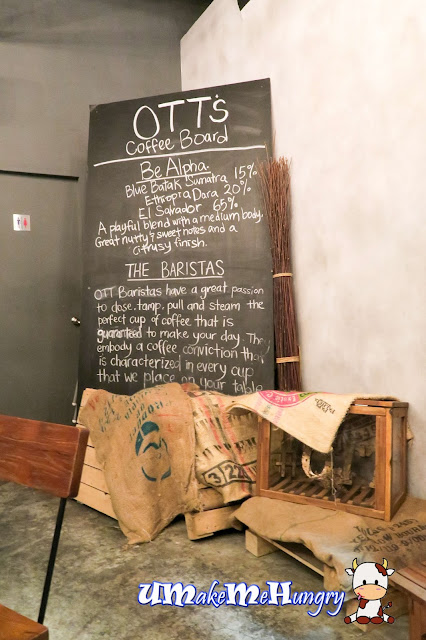 OTT's
Coffee Board
Be Alpha.
Blue Batak Sumatra 15%
Ethropia Dara 20%
El Salvador 65%
A playful blend with a medium body.
Great nutty & sweet notes and a
citrusy finish.
THE BARISTAS
OTT Baristas have a great passion
to dose, tamp, pull and steam the
perfect cup of coffee that is
guaranteed to make your day. They
embody a coffee conviction that
is characterized in every cup
that we place on your table
UMakeMeHungry